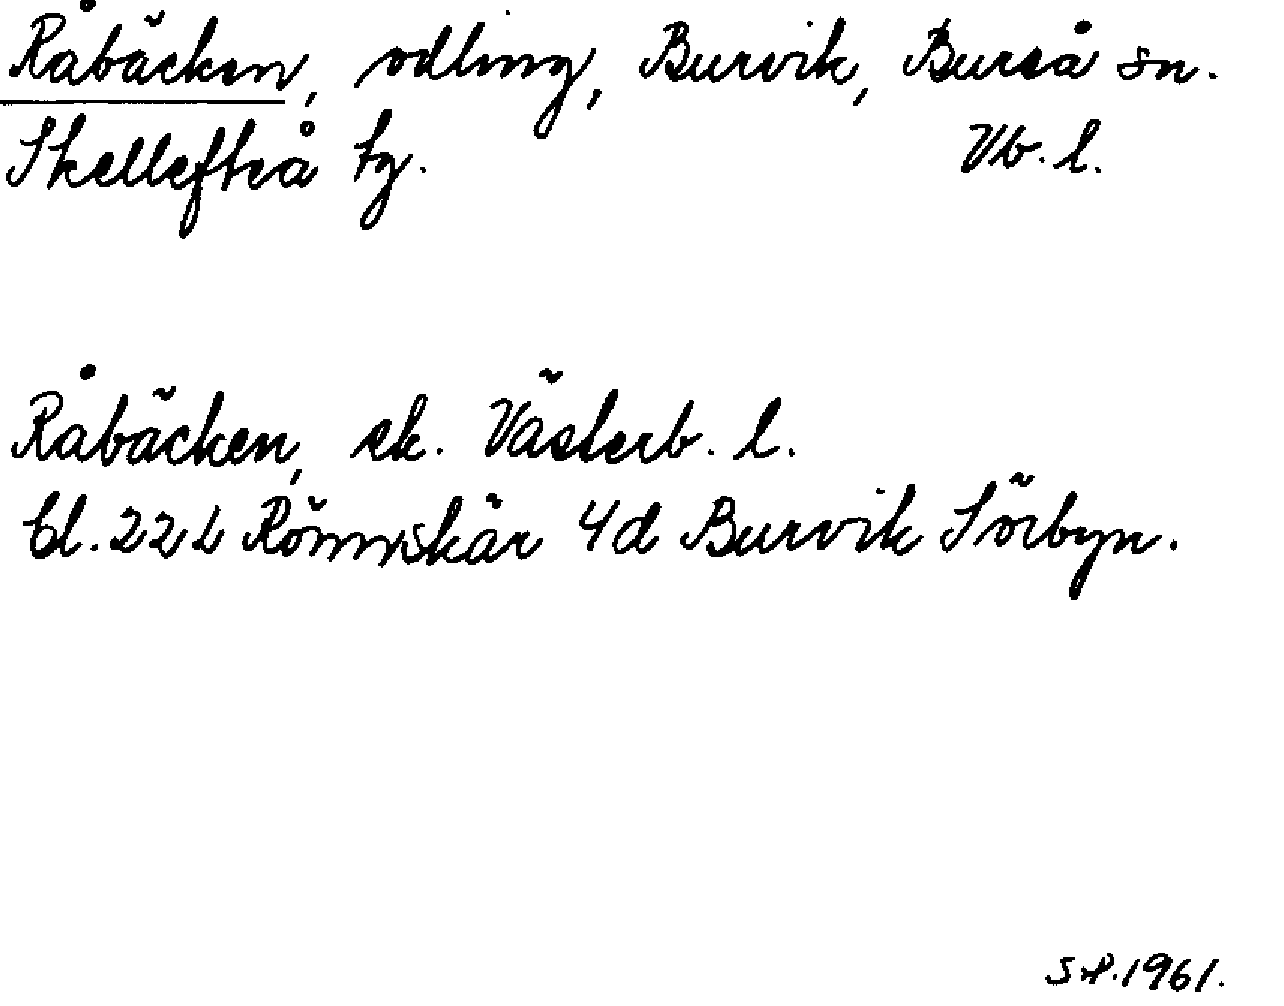 Råbäcken, odling, Burvik, Bureå sn.
Skellefteå tg. Vb. l.
Råbäcken, ek. Västerb. l.
bl. 22 L Rönnskär 4d Burvik Sörbyn.
S.P. 1961.